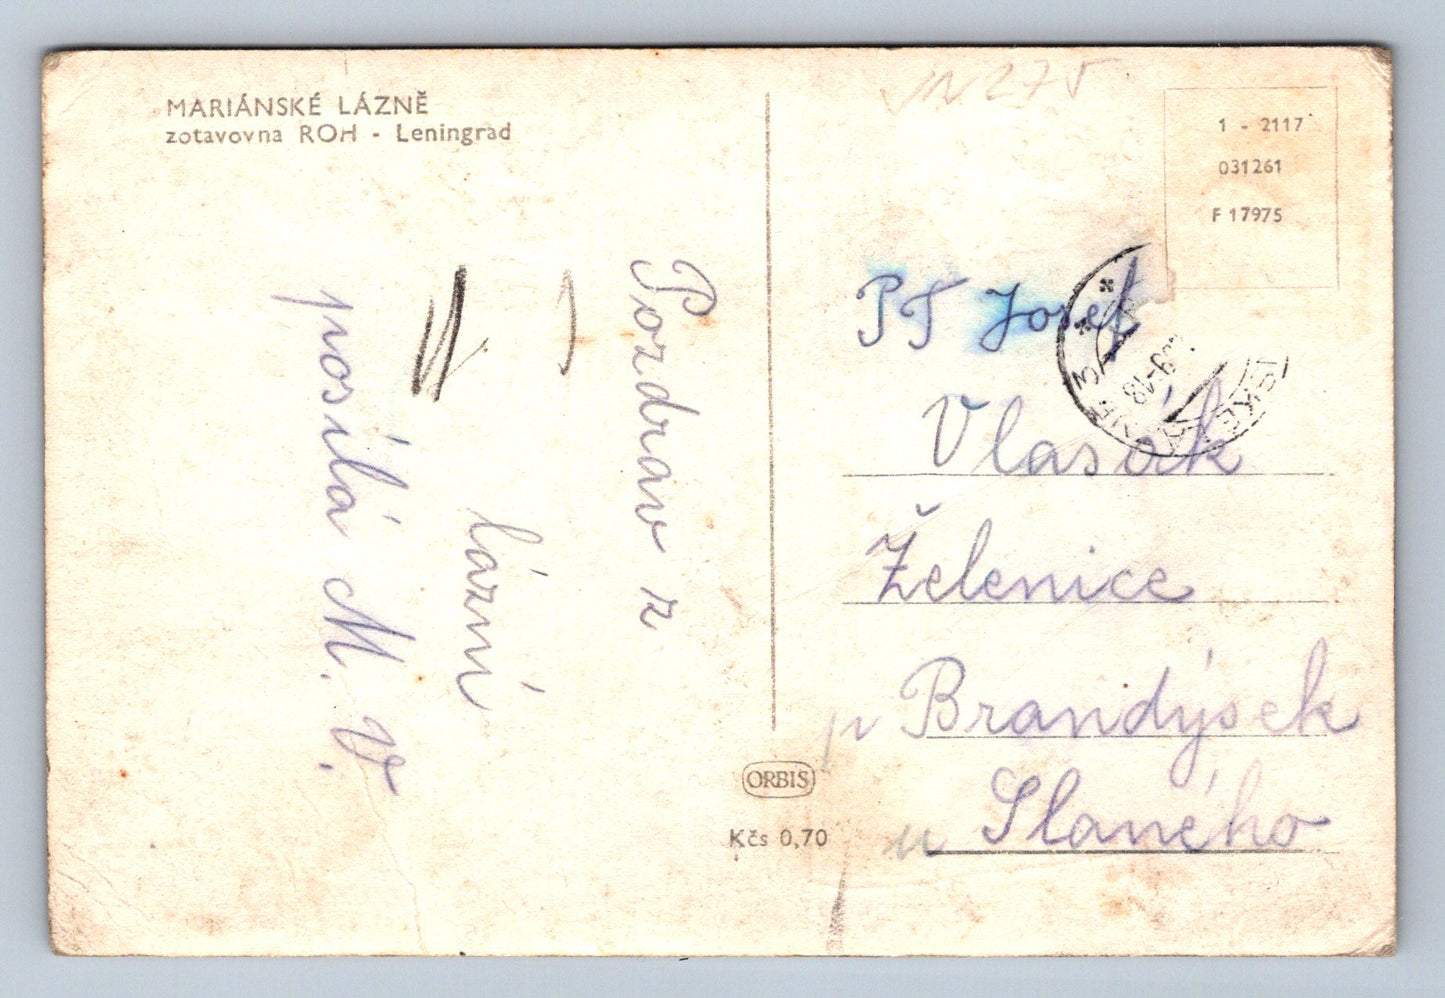 MARIÁNSKÉ LÁZNĚ
zotavovna ROH - Leningrad
Pozdrav z
lázní
posílá M. V.
ORBIS
Kčs 0,70
1 - 2117
031261
F 17975
PT Josef
Vlasák
Želenice
p Brandýsek
u Slaného